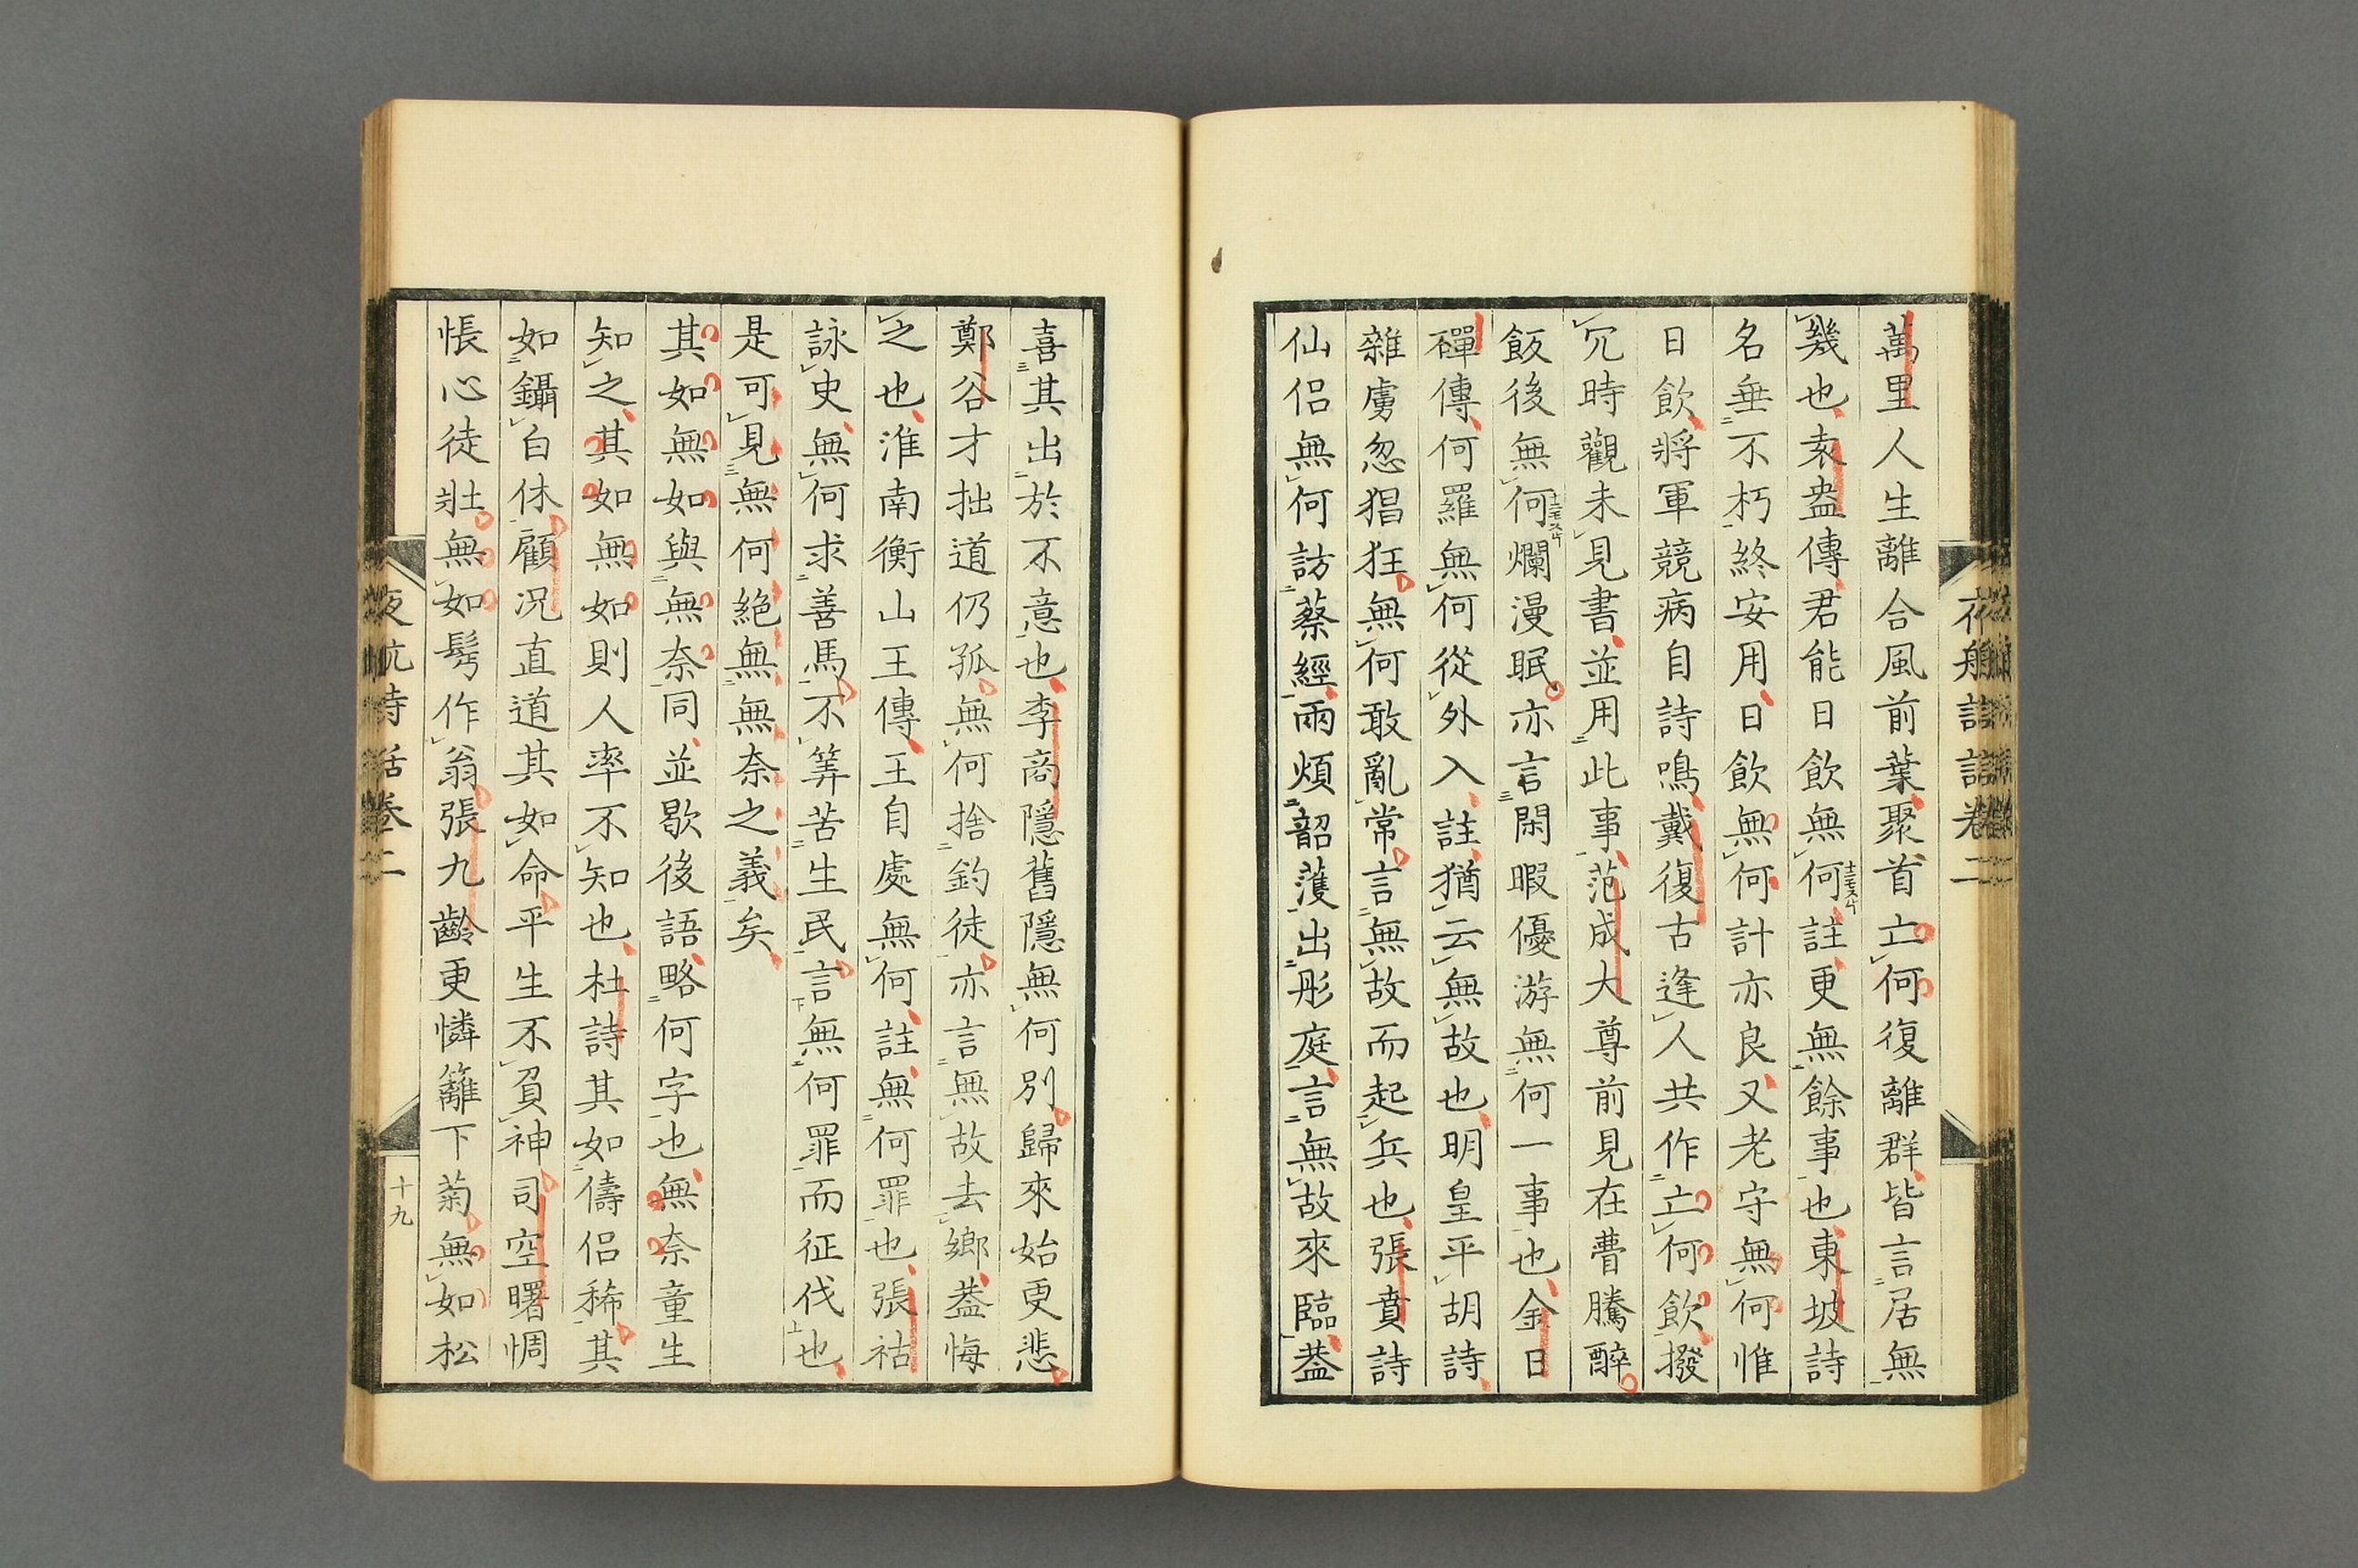 萬里人生離合風前葉聚首亡何復離群皆言居無
幾也袁盎傳君能日飲無何註更無餘事也東坡詩
名垂不朽終安用日飲無何計亦良又老守無何惟
日飲將軍競病自詩鳴戴復古逢人共作亡何飲撥
冗時觀未見書並用此事范成大尊前見在瞢騰醉
飯後無何爛漫眠亦言閑暇優游無何一事也金日
磾傳何羅無何從外入註猶云無故也明皇平胡詩
雜虜忽猖狂無何敢亂常言無故而起兵也張賁詩
仙侶無何訪蔡經兩煩韶頀出彤庭言無故來臨蓋
喜其出於不意也李商隱舊隱無何別歸來始更悲
鄭谷才拙道仍孤無何捨釣徒亦言無故去鄉蓋悔
之也淮南衡山王傳王自處無何註無何罪也張祜
詠史無何求善馬不筭苦生民言無何罪而征伐也
是可見無何絕無無奈之義矣
其如無如與無奈同並歇後語略何字也無奈童生
知之其如無如則人率不知也杜詩其如儔侶稀其
如鑷白休顧況直道其如命平生不負神司空曙惆
悵心徒壯無如鬂作翁張九齡更憐籬下菊無如松
夜航詩話卷二
十九